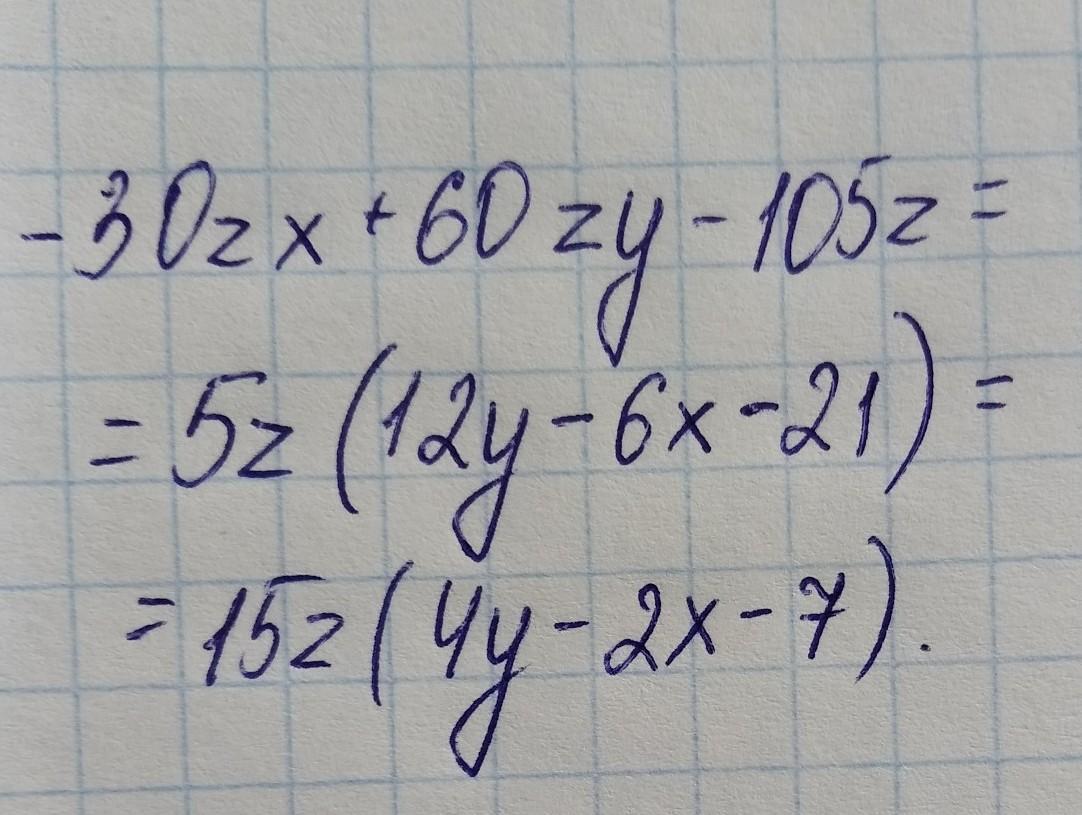 -30zx + 60zy - 105z =
= 5z (12y - 6x - 21) =
= 15z (4y - 2x - 7).